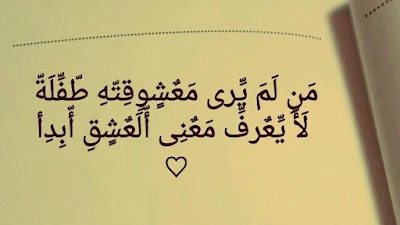 مَن لَمَ يِّرى مَعٌشٍوِقِتّهِ طّفِّلَةّ
لَأ يِّعٌرفِّ مَعٌنِى أّلَعٌشٍقِ أّبِدِأ
♡